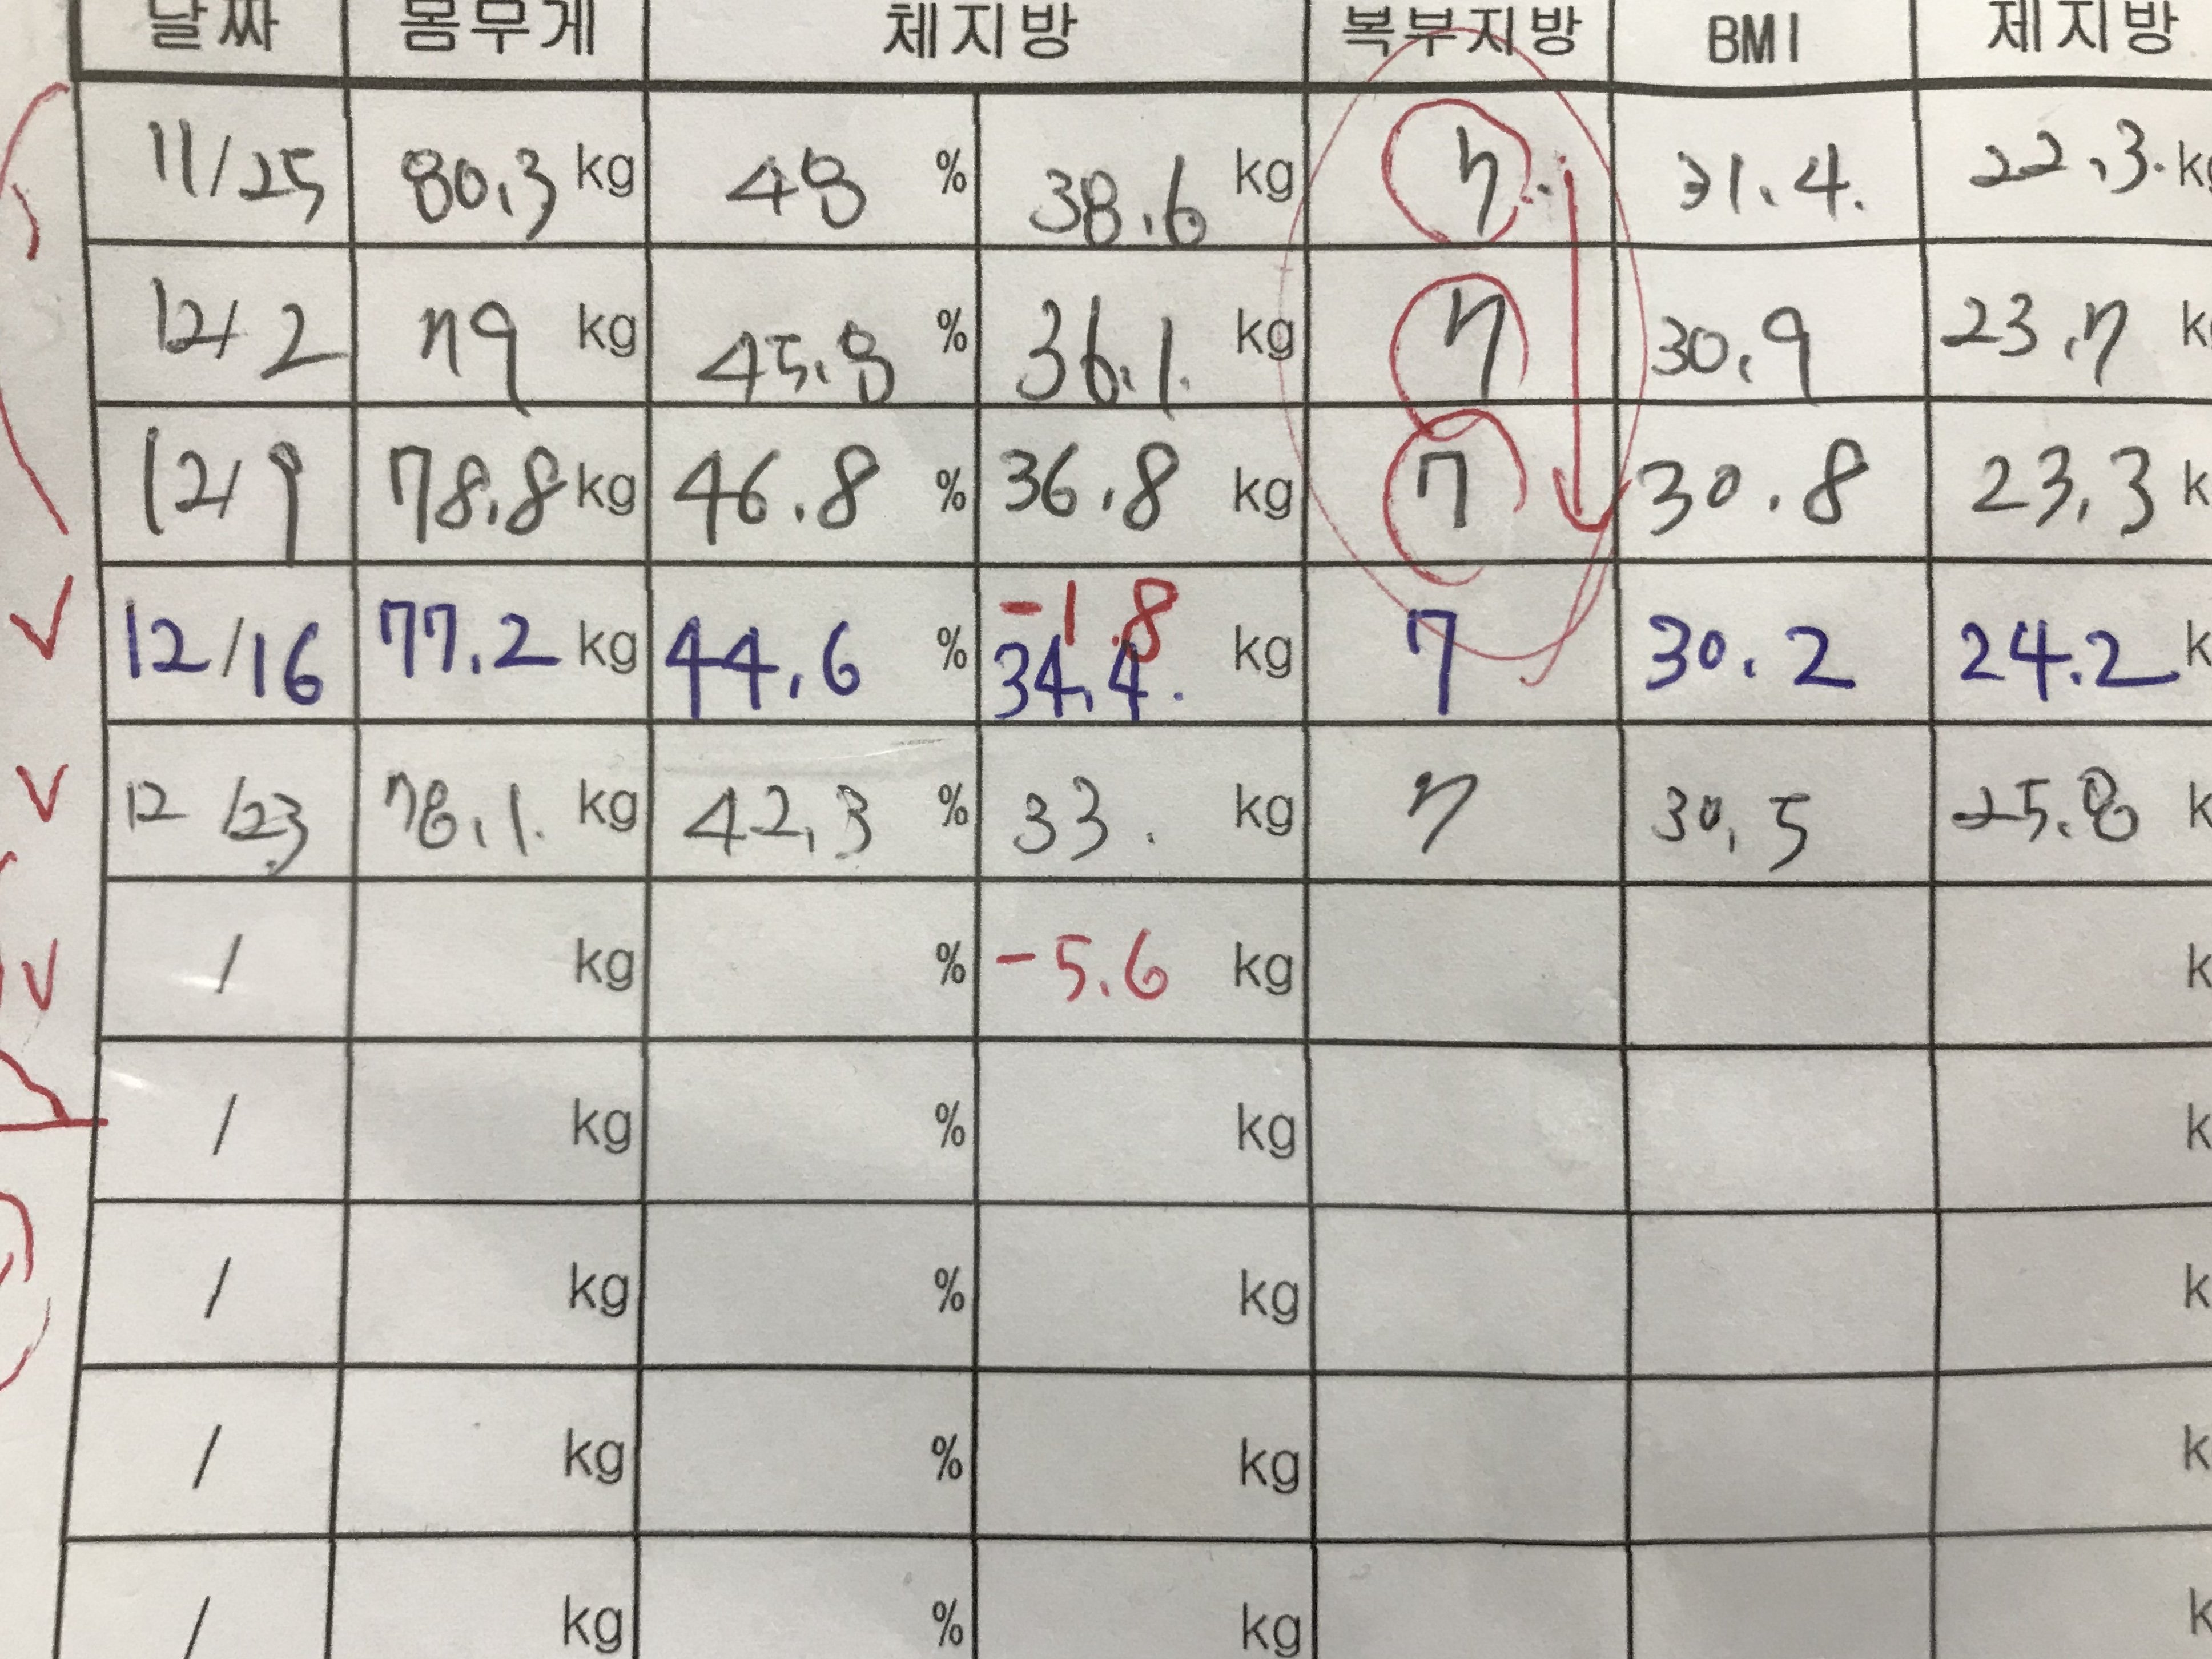 날짜 몸무게 체지방 복부지방 BMI 제지방
11/25 80.3 kg 48 % 38.6 kg 7 31.4. 22.3. kg
12/2 79 kg 45.8 % 36.1. kg 7 30.9 23.7 k
12/9 78.8 kg 46.8 % 36.8 kg 7 30.8 23.3 k
-1.8
12/16 77.2 kg 44.6 % 34.4. kg 7 30.2 24.2 k
12/23 78.1. kg 42.3 % 33. kg 7 30.5 25.8 k
/ kg % -5.6 kg k
/ kg % kg k
/ kg % kg k
/ kg % kg k
/ kg % kg k